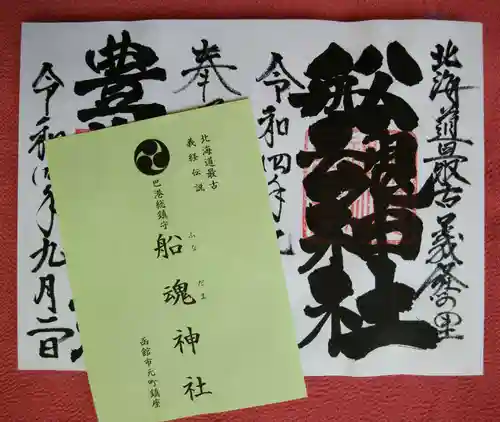 北海道最古 義経の里
船魂神社
令和四年九
奉
豊
令和四年九月二日
北海道最古
義経伝説
巴港総鎮守
船魂神社
ふな だま
函館市元町鎮座